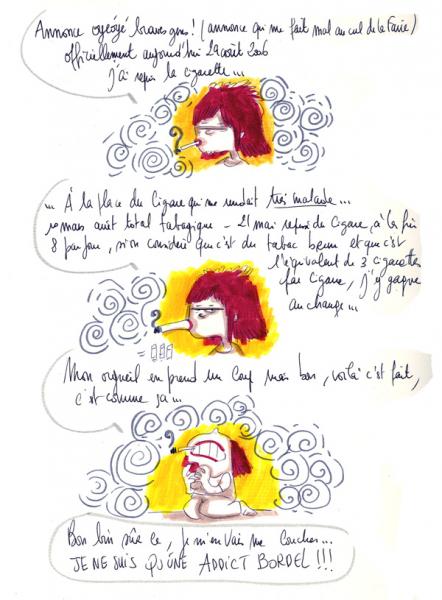 Annonce oyéoyé braves gens! (annonce qui me fait mal au cul de la faire)
officiellement aujourd'hui 29 août 2006
j'ai repris la cigarette...
... À la place du Cigare qui me rendait très malade...
10 mars arrêt total tabagique - 21 mai reprise de Cigare, à la fin
8 par jour, si on considère que c'est du tabac brun et que c'est
l'équivalent de 3 cigarettes
par cigare, j'y gagne
au change...
Mon orgueil en prend un Coup mais bon, voilà c'est fait,
c'est comme ça...
Bon bin sûr ce, je m'en Vais me Coucher...
JE NE SUIS QU'UNE ADDICT BORDEL !!!